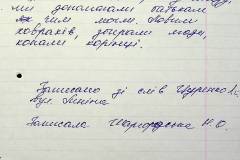 ми допомагали батькам
як чим могли. Ловили
ховрахів, збирали мерзлі,
копали корінці.
Записано зі слів Щуренко
вул. Леніна
Записала Шапорська Н. О.